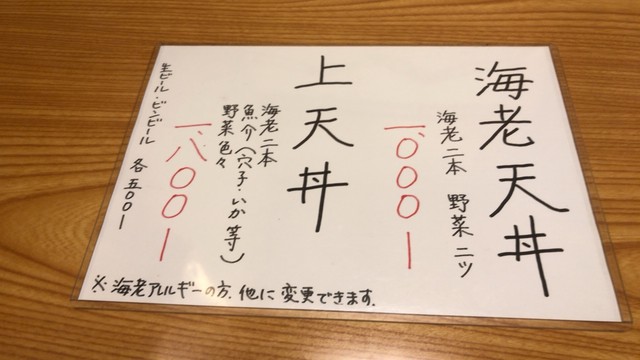 海老天丼
海老二本 野菜二ツ
一、〇〇〇ー
上天丼
海老二本
魚介(穴子・いか等)
野菜色々
一、八〇〇ー
生ビール・ビンビール 各五〇〇ー
※海老アレルギーの方、他に変更できます。